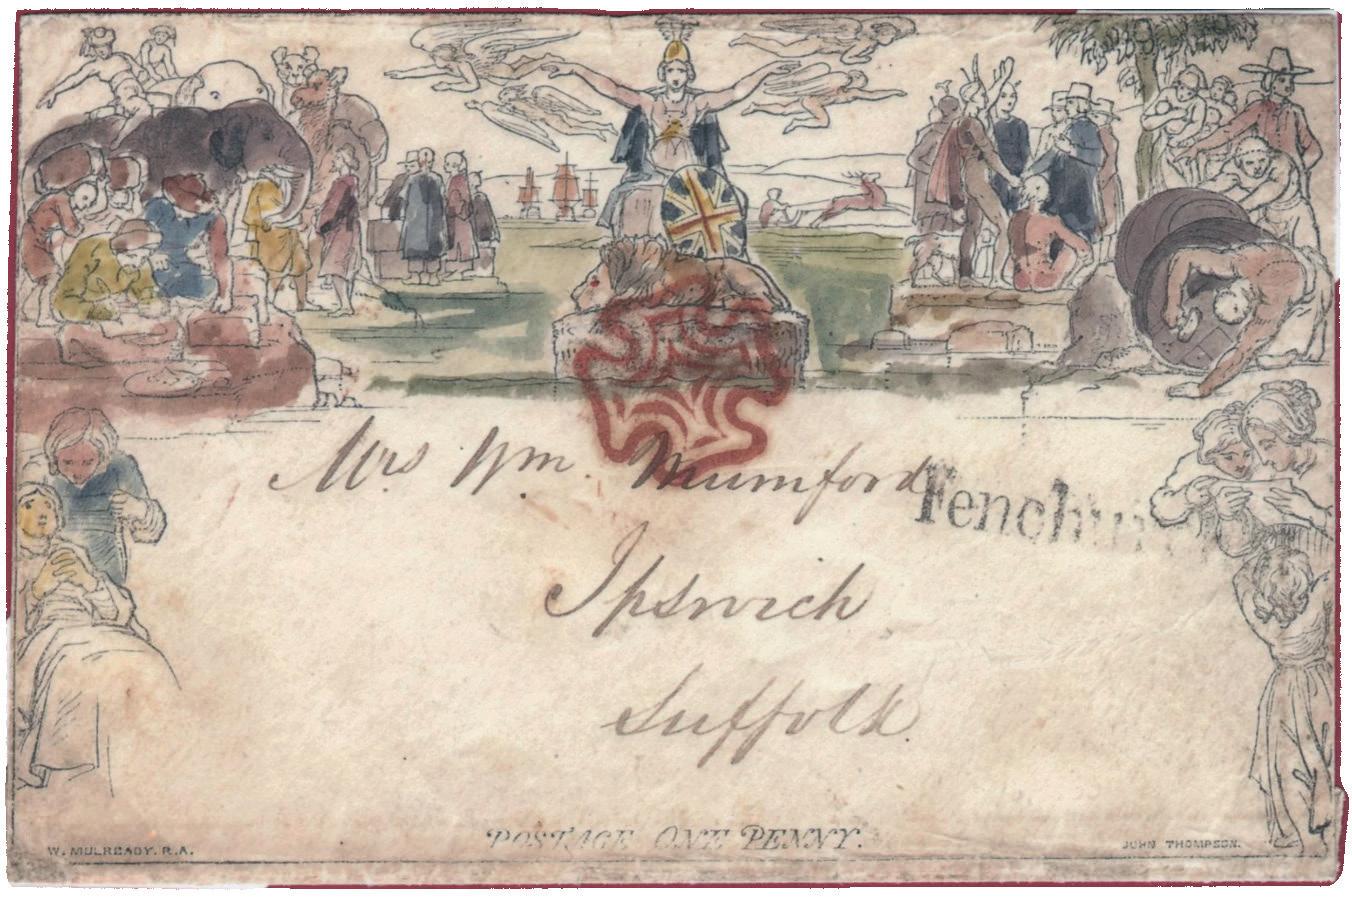 Mrs Wm. Mumford
Ipswich
Suffolk.
POSTAGE ONE PENNY.
W. MULREADY. R.A.
JOHN THOMPSON.